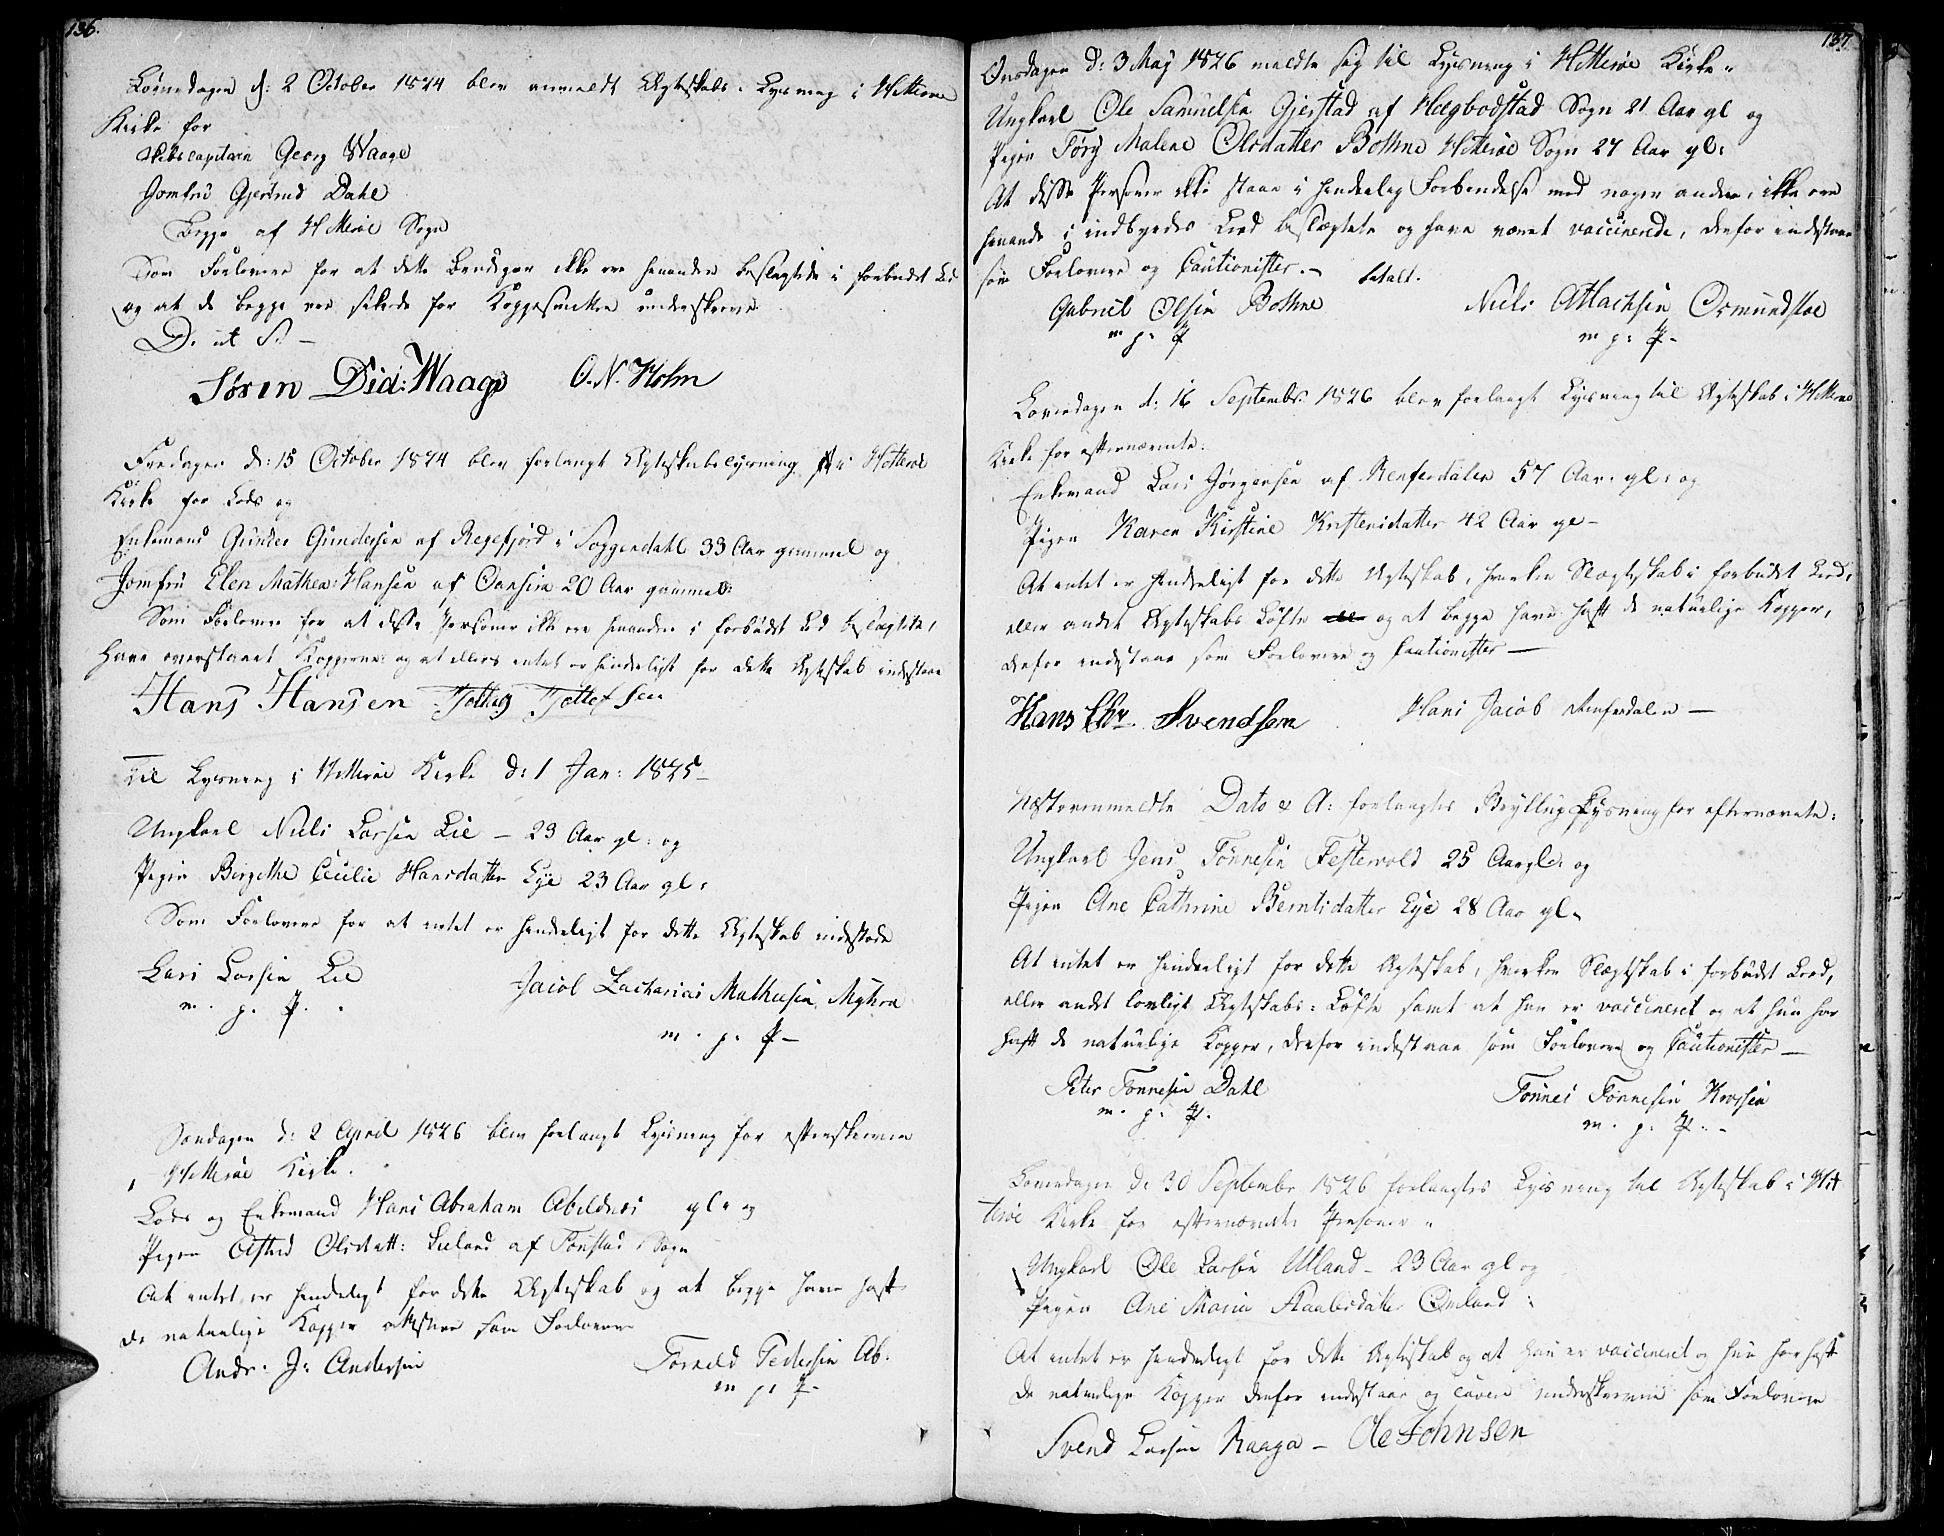 136.
Løverdagen d: 2 October 1824 blev anmeldt Ægteskabs-Lysning i Hitterøe
Kirke for
Skibscapitain Georg Waage
Jomfru Gjertrud Dahl
Begge af Hitterøe Sogn
Som Forlovere for at dette Brudepar ikke ere hinanden beslægtede i forbudet Led
og at de begge ere sikrede for Koppesmitten underskrive
D. ut S. –
Søren Did: Waage O. N. Holm
Fredagen d: 15 October 1824 blev forlangt Ægteskabslysning i Hitterøe
Kirke for Lods og
Enkemand Gunder Gundersen af Regefjord i Soggendahl 33 Aar gammel og
Jomfru Elen Mathea Hansen af 20 Aar gammel:
Som Forlovere for at disse Personer ikke ere hinanden i forbudet Led beslægtede,
have overstaaet Kopperne og at ellers intet er hinderligt for dette Ægteskab indestaae
Hans Hansen Tollef Tollefsen
Til Lysning i Hitterøe Kirke d: 1 Jan: 1825 –
Ungkarl Niels Larsen Lie – 29 Aar gl: og
Pigen Birgithe Cecilie Hansdatter Eye 23 Aar gl:
Som Forlovere for at intet er hinderligt for dette Ægteskab indestode
Lars Larsen Lie Jacob Zacharias Mathiesen Myhra
m. p. P. m. p. P –
Søndagen d: 2 April 1826 blev forlangt Lysning for efterskrevne
i Hitterøe Kirke.
Lods og Enkemand Hans Abraham Abildnes gl: og
Pigen Astrid Olsdatt: Lieland af Tonstad Sogn
At intet er hinderligt for dette Ægteskab og at begge have haft
de naturlige Kopper attestere som Forlovere
Andr. J: Andersen Torkild Pedersen Ab.
m p: P –
137
Onsdagen d: 3 May 1826 meldte sig til Lysning i Hitterøe Kirke
Ungkarl Ole Samuelsen Gjerstad af Hægbodstad Sogn 21 Aar gl og
Pigen Törg Malene Olsdatter Bothne Hitterøe Sogn 27 Aar gl:
At disse Personer ikke staae i hinderlig Forbindelse med nogen anden, ikke ere
hinanden i indbyrdes Led beslægtede og have været vaccinerede, derfor indestaae
som Forlovere og Cautionister. – betalt.
Gabriel Olsen Bothne Niels Attlachsen Osmundstøe
m p: P m p: P –
Løverdagen d: 16 Septembr. 1826 blev forlangt Lysning til Ægteskab i Hitterøe
Kirke for efternævnte:
Enkemand Lars Jørgensen af Renferdalen 57 Aar gl: og
Pigen Karen Kirstine Kristensdatter 42 Aar gl –
At intet er hinderligt for dette Ægteskab, hverken Slægtskab i forbudet Led,
eller andet Ægteskabs Løfte og at begge have haft de naturlige Kopper,
derfor indestaae som Forlovere og Cautionister –
Hans Chr. Svendsen Hans Jacob Renferdalen –
Næstovenmeldte Dato & A: forlangtes Bryllups Lysning for efternævnte:
Ungkarl Jens Tönnesen Festervold 25 Aar gl: og
Pigen Ane Cathrine Berntsdatter Eye 28 Aar gl.
At intet er hinderligt for dette Ægteskab, hverken Slægtskab i forbudet Led,
eller andet lovligt Ægteskabs-Løfte samt at han er vaccineret og at hun har
haft de naturlige Kopper, derfor indestaae som Forlovere og Cautionister –
Peter Tönnesen Dahl Tönnes Tönnesen
m. p: P. m. p. P. –
Løverdagen d: 30 Septembr 1826 forlangtes Lysning til Ægteskab i Hit
terøe Kirke for efternævnte Personer
Ungkarl Ole Larsen Ulland – 23 Aar gl og
Pigen Ane Maria Omland:
At intet er hinderligt for dette Ægteskab og at han er vaccineret og hun har haft
de naturlige Kopper derfor indestaae og cavere underskrevne som Forlovere
Svend Larsen Raaga – Ole Johnsen